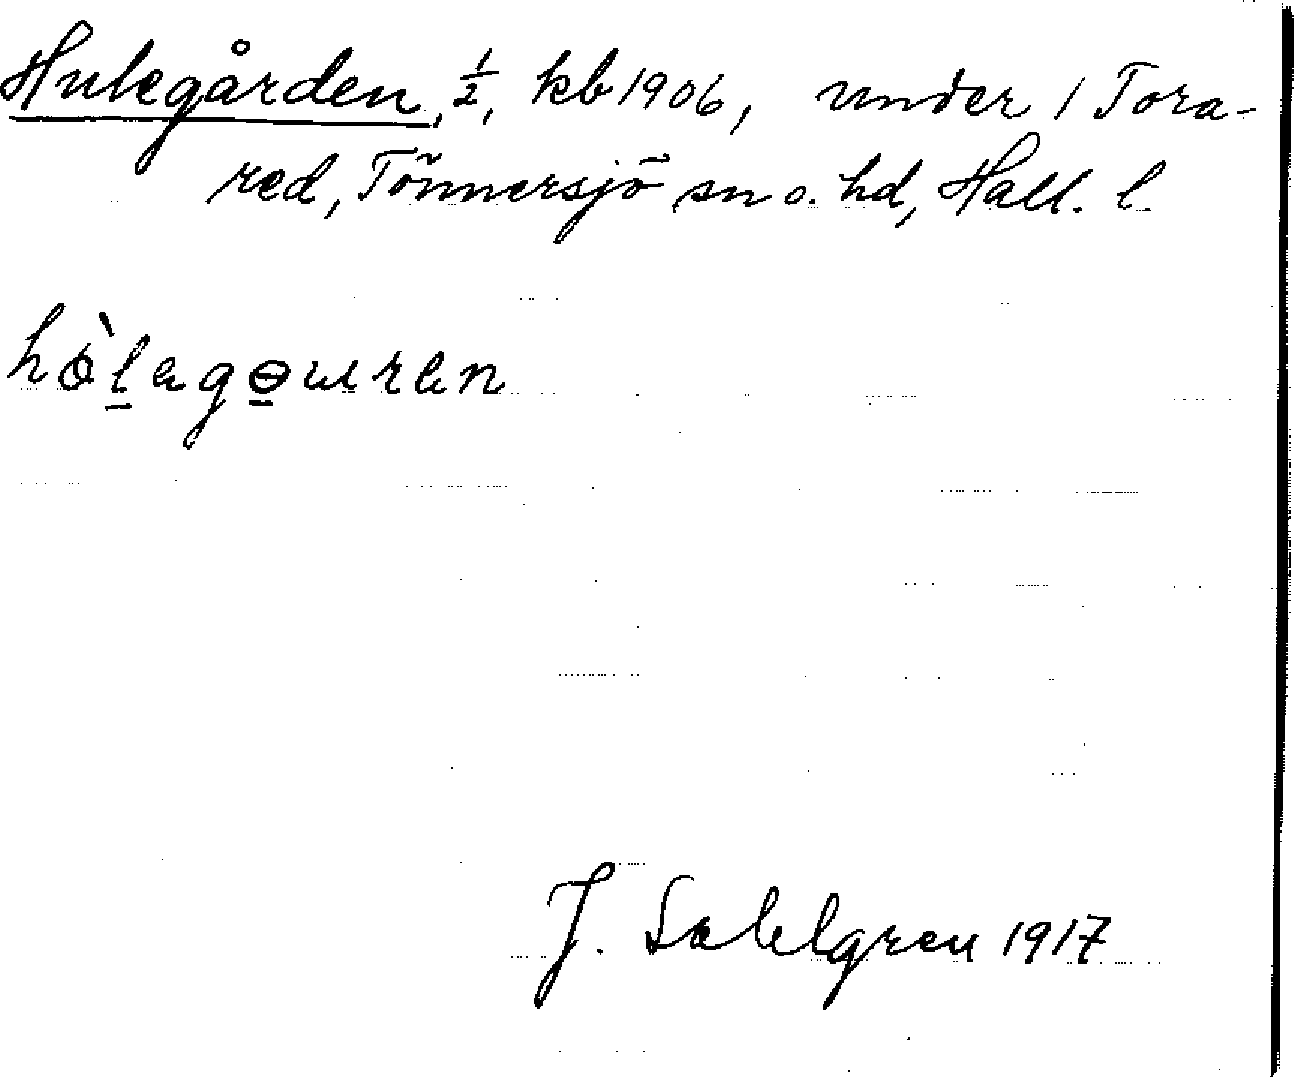 Hulegården, ½, kb 1906, under 1 Tora-
red, Tönnersjö sn o. hd, Hall. l.
hòlagɵwran
J. Sahlgren 1917